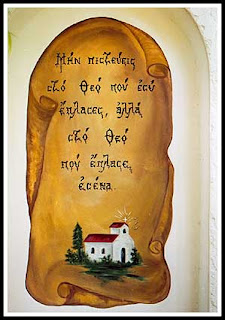 Μήν πιστεύεις
στό Θεό πού ἐσύ
ἔπλασες, ἀλλά
στό Θεό
πού ἔπλασε
ἐσένα.